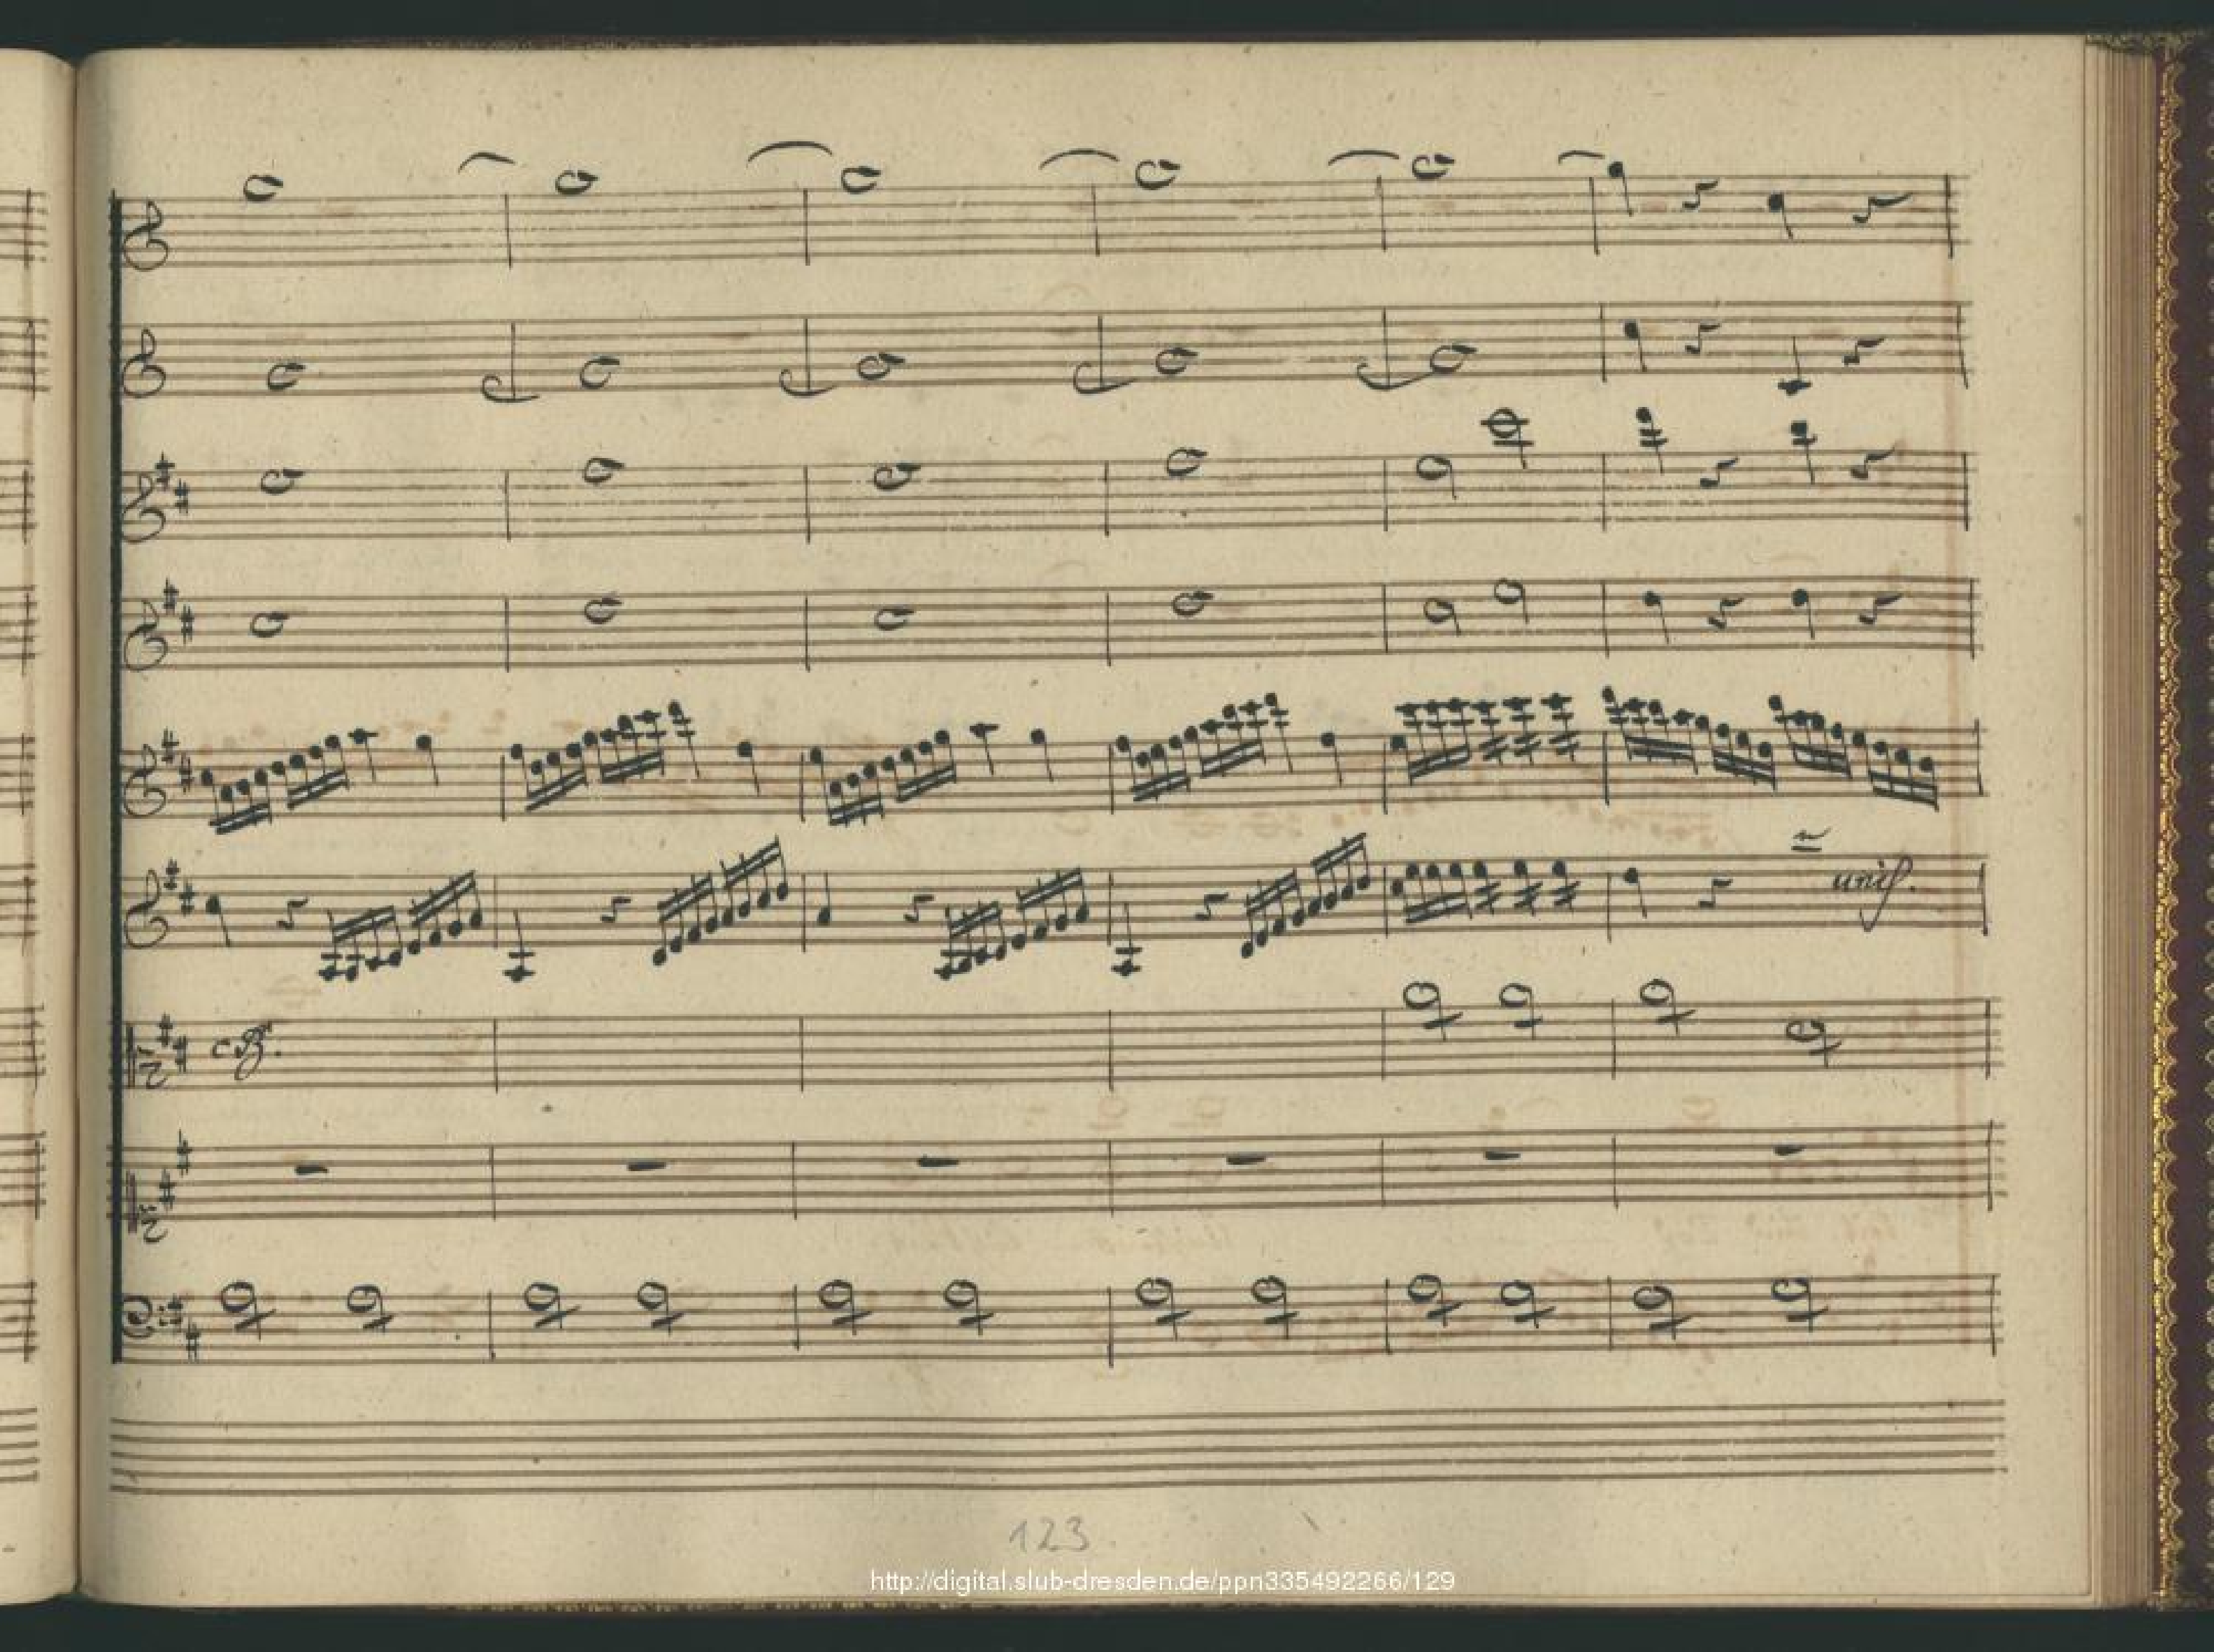 unis.
cB.
123
http://digital.slub-dresden.de/ppn335492266/129